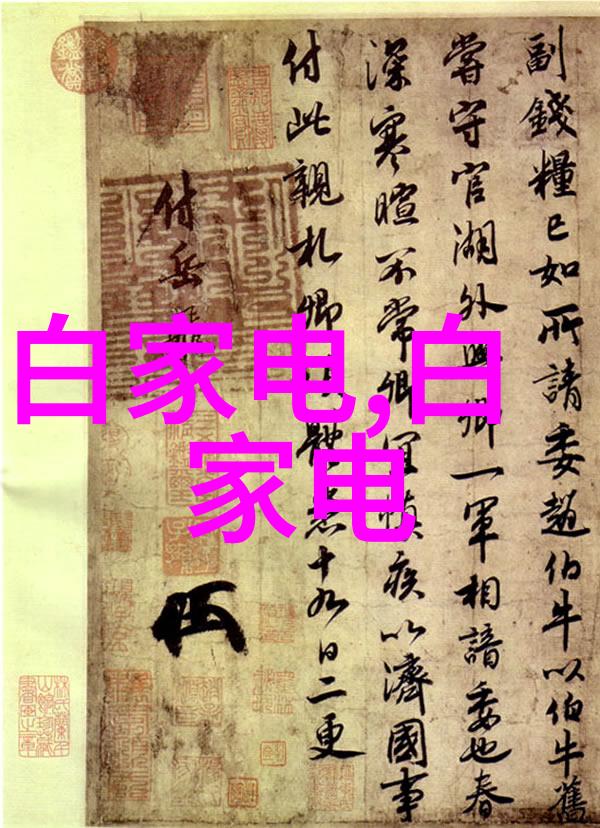 副錢糧已如所請委趙伯牛以伯牛舊
嘗守官湖外與卿一軍相諳委也春
深寒暄不常卿宜慎疾以濟國事
付此親札卿體悉十九日二更
付岳飛
白家电,白
家电